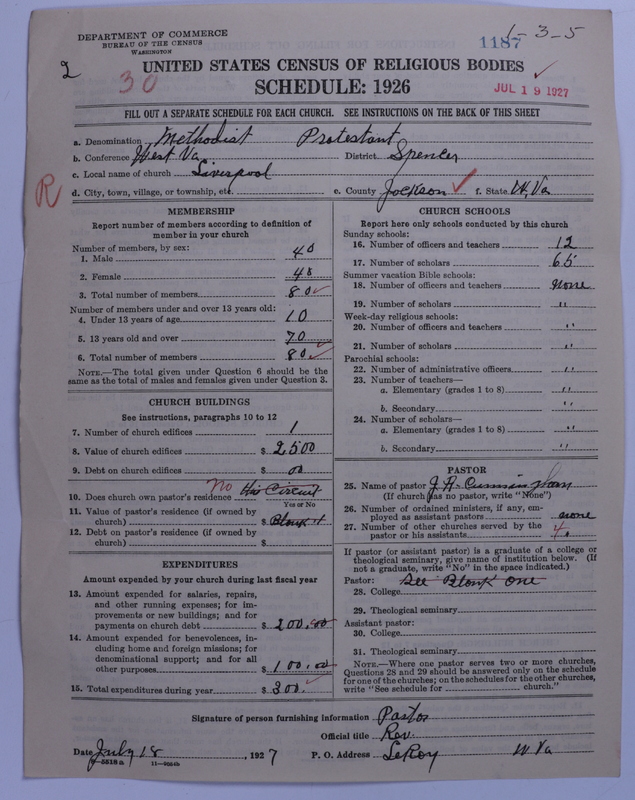 DEPARTMENT OF COMMERCE
BUREAU OF THE CENSUS
WASHINGTON
1187
1-3-5
2
30
UNITED STATES CENSUS OF RELIGIOUS BODIES
SCHEDULE: 1926
JUL 19 1927
FILL OUT A SEPARATE SCHEDULE FOR EACH CHURCH. SEE INSTRUCTIONS ON THE BACK OF THIS SHEET
a. Denomination Methodist Protestant
b. Conference West Va District Spencer
c. Local name of church Liverpool
R
d. City, town, village, or township, etc. e. County Jackson f. State W, Va
MEMBERSHIP
Report number of members according to definition of
member in your church
Number of members, by sex:
1. Male 40
2. Female 40
3. Total number of members 80
Number of members under and over 13 years old:
4. Under 13 years of age 10
5. 13 years old and over 70
6. Total number of members 80
NOTE.—The total given under Question 6 should be
same as the total of males and females given under Question 3.
CHURCH BUILDINGS
See instructions, paragraphs 10 to 12
7. Number of church edifices 1
8. Value of church edifices $ 2500
9. Debt on church edifices $ 00
10. Does church own pastor's residence No this Circuit
Yes or No
11. Value of pastor's residence (if owned by
church) $ Blank 1
12. Debt on pastor's residence (if owned by
church) $
EXPENDITURES
Amount expended by your church during last fiscal year
13. Amount expended for salaries, repairs,
and other running expenses; for im-
provements or new buildings; and for
payments on church debt $ 200.00
14. Amount expended for benevolences, in-
cluding home and foreign missions; for
denominational support; and for all
other purposes $ 100.00
15. Total expenditures during year $ 300.
CHURCH SCHOOLS
Report here only schools conducted by this church
Sunday schools:
16. Number of officers and teachers 12
17. Number of scholars 65
Summer vacation Bible schools:
18. Number of officers and teachers none
19. Number of scholars "
Week-day religious schools:
20. Number of officers and teachers "
21. Number of scholars "
Parochial schools:
22. Number of administrative officers "
23. Number of teachers—
a. Elementary (grades 1 to 8) "
b. Secondary "
24. Number of scholars—
a. Elementary (grades 1 to 8) "
b. Secondary "
PASTOR
25. Name of pastor J. R. Cunningham
(If church has no pastor, write "None")
26. Number of ordained ministers, if any, em-
ployed as assistant pastors none
27. Number of other churches served by the
pastor or his assistants 4
If pastor (or assistant pastor) is a graduate of a college or
theological seminary, give name of institution below. (If
not a graduate, write "No" in the space indicated.)
Pastor: See Blank One
28. College
29. Theological seminary
Assistant pastor:
30. College
31. Theological seminary
NOTE.—Where one pastor serves two or more churches,
Questions 28 and 29 should be answered only on the schedule
for one of the churches; on the schedules for the other churches,
write "See schedule for church."
Signature of person furnishing information Pastor
Official title Rev.
Date July 18, 1927 P. O. Address LeRoy W Va